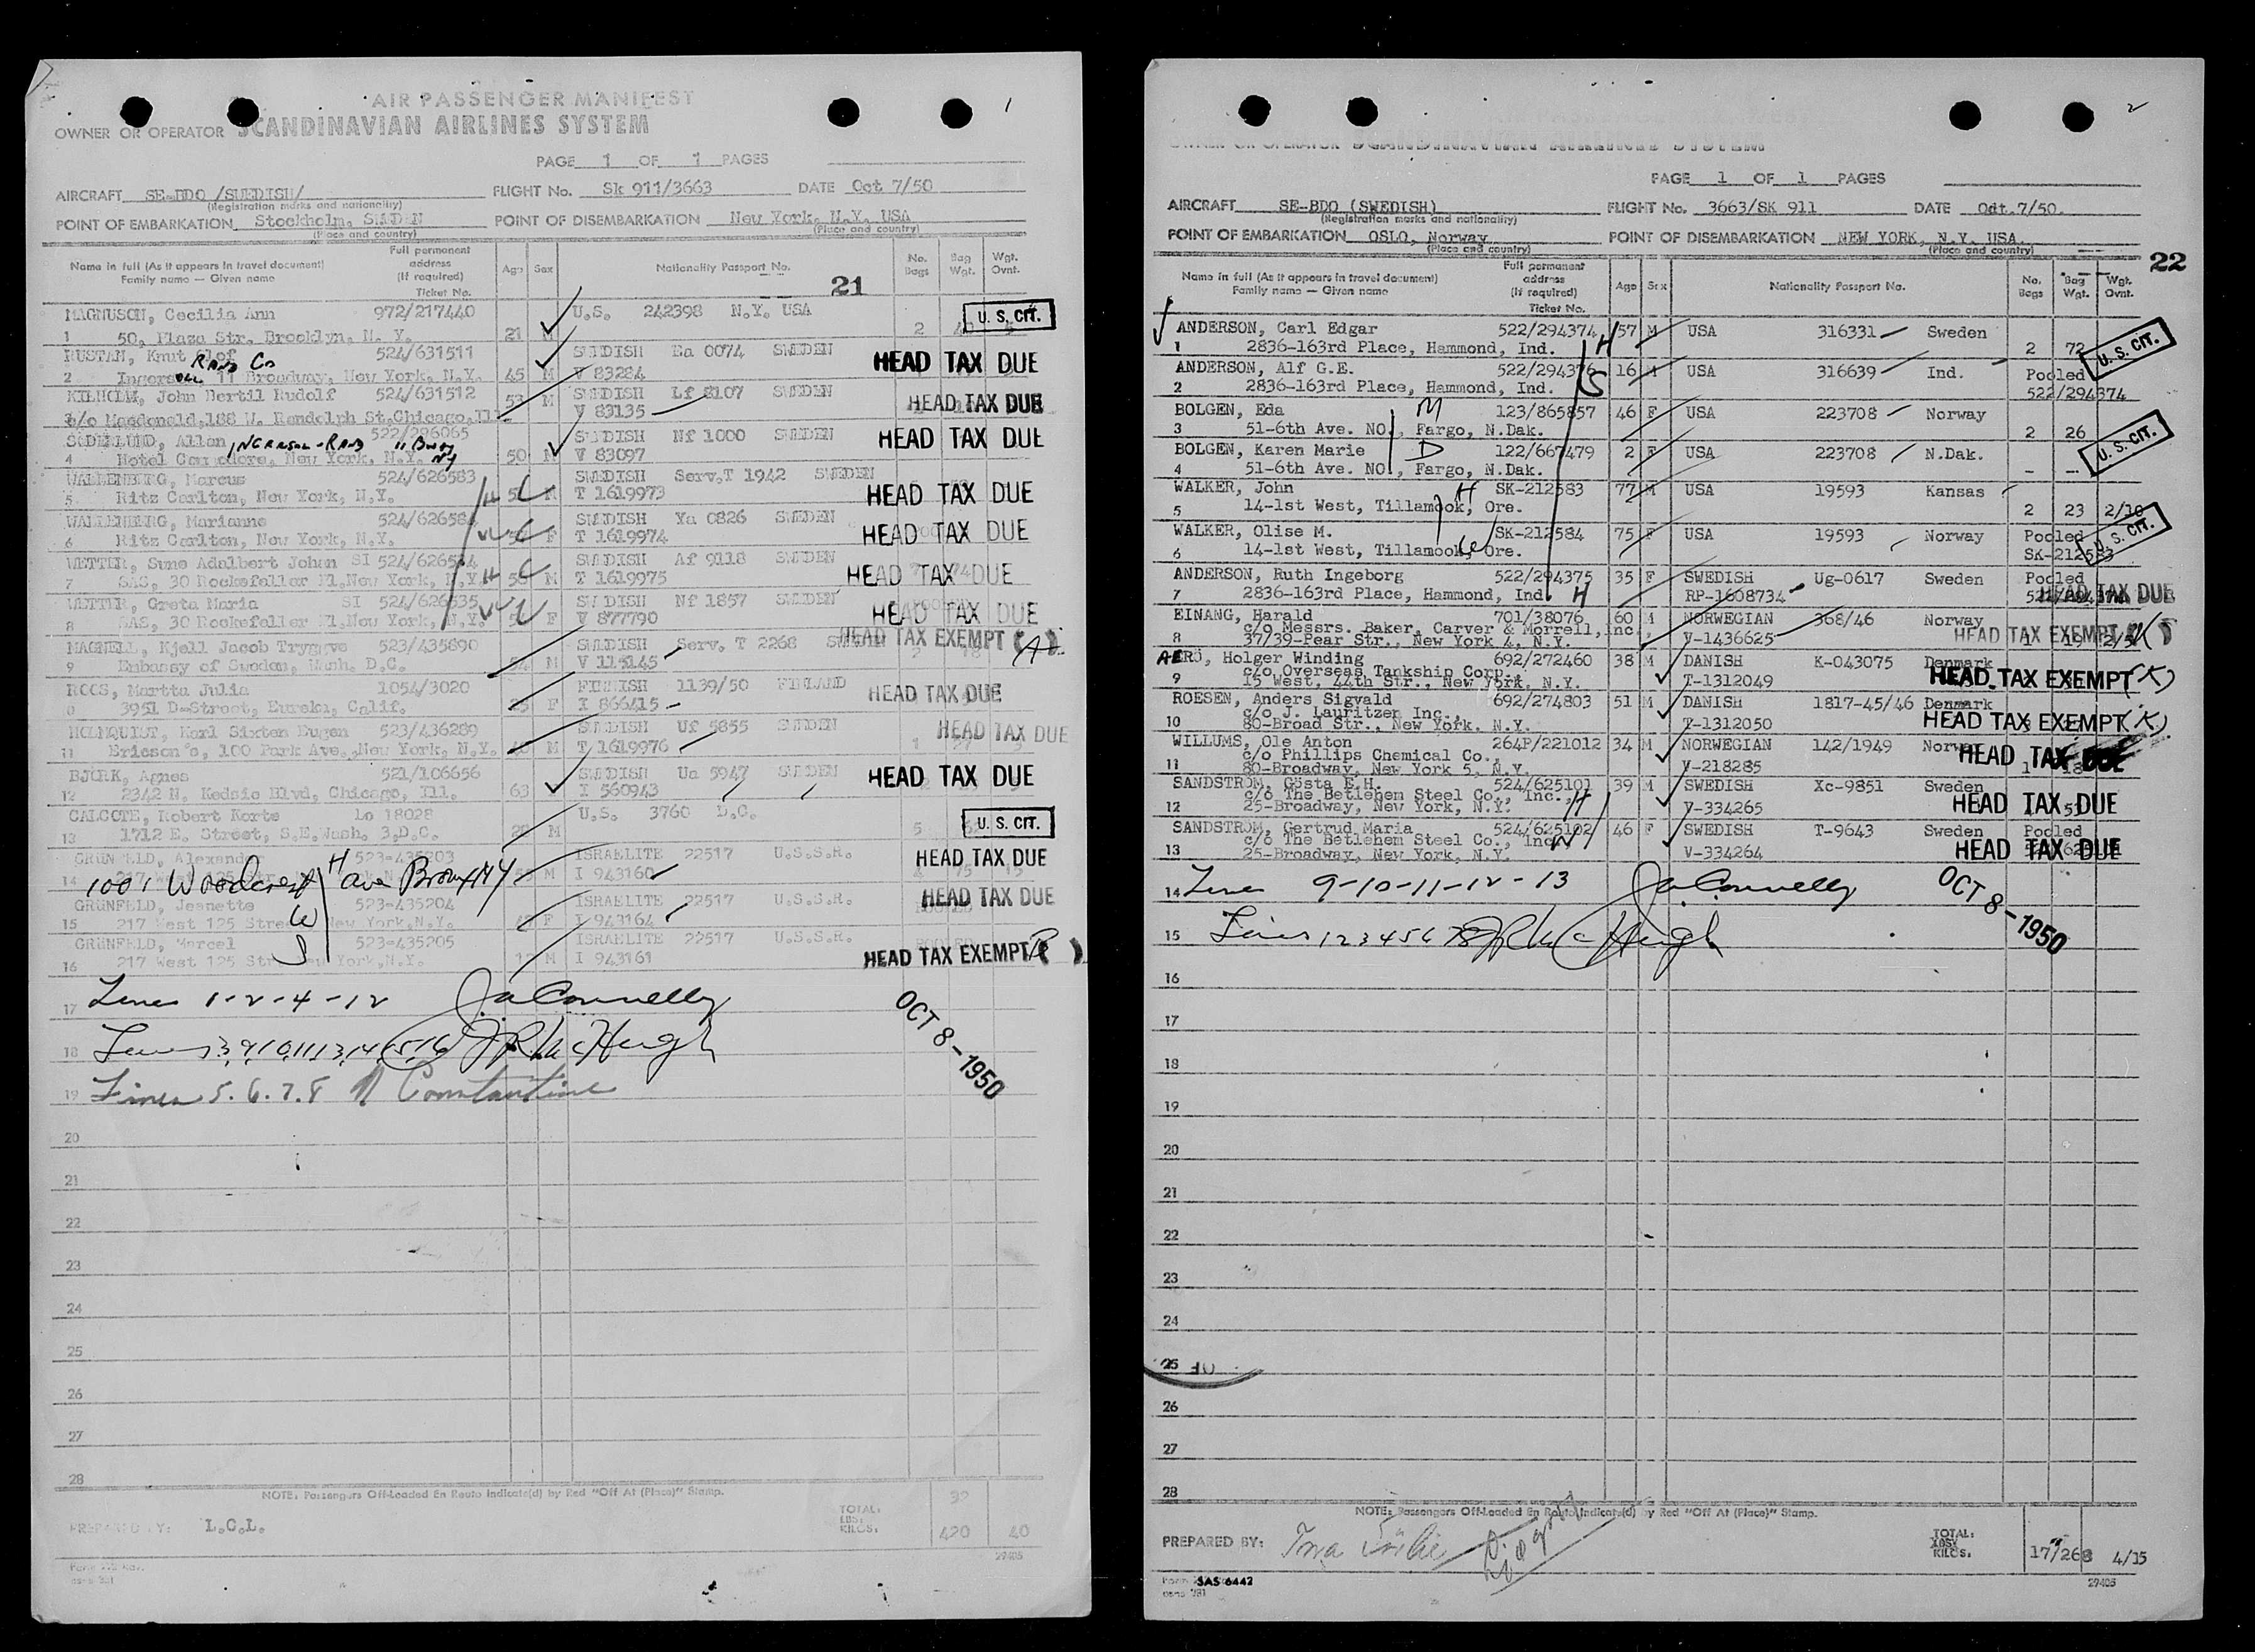 AIR PASSENGER MANIFEST
OWNER OR OPERATOR SCANDINAVIAN AIRLINES SYSTEM
1
PAGE 1 OF 1 PAGES
AIRCRAFT SE-BDO /SWEDISH/ FLIGHT No. Sk 911/3663 DATE Oct 7/50
(Registration marks and nationality)
POINT OF EMBARKATION Stockholm, SWEDEN POINT OF DISEMBARKATION New York, N.Y. USA
(Place and country) (Place and country)
Name in full (As it appears in travel document) Family name — Given name Full permanent address (If required) Ticket No. Age Sex Nationality Passport No. No. Bags Bag Wgt. Wgt. Ovnt.
21
MAGNUSON, Cecilia Ann 972/217440 U.S. 242398 N.Y. USA U. S. CIT.
1 50, Plaza Str. Brooklyn, N. Y. 21 2
RUSTAN, Knut Olof 524/631511 SWEDISH Ea 0074 SWEDEN HEAD TAX DUE
RAND Co
2 Ingersoll 11 Broadway, New York, N.Y. 45 M V 83284
KIHLHOLM, John Bertil Rudolf 524/631512 53 M SWEDISH Lf 8107 SWEDEN HEAD TAX DUE
3 c/o Macdonald, 188 W. Randolph St, Chicago, Ill. V 83135
SÖDERLUND, Allan 522/296065 SWEDISH Nf 1000 SWEDEN HEAD TAX DUE
INGERSOL-RAND 11 Bway NY
4 Hotel Commodore, New York, N.Y. 50 M V 83097
WALLENBERG, Marcus 524/626583 SWEDISH Serv.T 1942 SWEDEN HEAD TAX DUE
5 Ritz Carlton, New York, N.Y. H M T 1619973
WALLENBERG, Marianne 524/626584 SWEDISH Ya 0826 SWEDEN HEAD TAX DUE
6 Ritz Carlton, New York, N.Y. W F T 1619974
WETTER, Sune Adalbert Johan SI 524/626534 SWEDISH Af 9118 SWEDEN HEAD TAX DUE
7 SAS, 30 Rockefeller Pl, New York, N.Y. H M T 1619975
WETTER, Greta Maria SI 524/626535 SWEDISH Nf 1857 SWEDEN HEAD TAX DUE
8 SAS, 30 Rockefeller Pl, New York, N.Y. W F V 877790
MAGNELL, Kjell Jacob Tryggve 523/435890 SWEDISH Serv. T 2268 SWEDEN HEAD TAX EXEMPT (A)
9 Embassy of Sweden, Wash. D.C. M V 115145
ROOS, Martta Julia 1054/3020 FINNISH 1139/50 FINLAND HEAD TAX DUE
3951 D-Street, Eureka, Calif. 25 F I 866415
HOLMQUIST, Karl Sixten Eugen 523/436289 SWEDISH Uf 5855 SWEDEN HEAD TAX DUE
11 Ericson's, 100 Park Ave., New York, N.Y. M T 1619976
BJÖRK, Agnes 521/106656 SWEDISH Ua 5947 SWEDEN HEAD TAX DUE
12 2342 N. Kedsie Blvd, Chicago, Ill. 63 I 560943
CALCOTE, Robert Korte Lo 18028 U.S. 3760 D.C. U. S. CIT.
13 1712 E. Street, S.E. Wash. 3, D.C. M 5
GRÜNFELD, Alexander 523-435203 ISRAELITE 22517 U.S.S.R. HEAD TAX DUE
14 1001 Woodcrest Ave Bronx NY H M I 943160
GRÜNFELD, Jeanette 523-435204 ISRAELITE 22517 U.S.S.R. HEAD TAX DUE
15 217 West 125 Street New York, N.Y. W F I 943164
GRÜNFELD, Marcel 523-435205 ISRAELITE 22517 U.S.S.R. HEAD TAX EXEMPT
16 217 West 125 Str New York, N.Y. S M I 943161
17 Lines 1-2-4-12 J.A. Connelly
18 Lines 3,9,10,11,13,14,15,16 J R McHugh
OCT 8-1950
19 Lines 5.6.7.8 N Constantine
20
21
22
23
24
25
26
27
28
NOTE: Passengers Off-Loaded En Route Indicate(d) by Red "Off At (Place)" Stamp.
PREPARED BY: L.C.L. TOTAL: LBS. KILOS. 420 40
27405
2
OWNER OR OPERATOR SCANDINAVIAN AIRLINES SYSTEM
PAGE 1 OF 1 PAGES
AIRCRAFT SE-BDO (SWEDISH) FLIGHT No. 3663/SK 911 DATE Odt.7/50.
(Registration marks and nationality)
POINT OF EMBARKATION OSLO, Norway POINT OF DISEMBARKATION NEW YORK, N.Y. USA.
(Place and country) (Place and country)
22
Name in full (As it appears in travel document) Family name — Given name Full permanent address (If required) Ticket No. Age Sex Nationality Passport No. No. Bags Bag Wgt. Wgt. Ovnt.
ANDERSON, Carl Edgar 522/294374 H 57 M USA 316331 Sweden
1 2836-163rd Place, Hammond, Ind. 2 72 U. S. CIT.
ANDERSON, Alf G.E. 522/294376 S 16 M USA 316639 Ind. Pooled
2 2836-163rd Place, Hammond, Ind. 522/294374
BOLGEN, Eda M 123/865857 46 F USA 223708 Norway
3 51-6th Ave. NO., Fargo, N.Dak. 2 26
BOLGEN, Karen Marie D 122/667479 2 F USA 223708 N.Dak. U. S. CIT.
4 51-6th Ave. NO., Fargo, N.Dak. - -
WALKER, John H SK-212583 77 M USA 19593 Kansas
5 14-1st West, Tillamook, Ore. 2 23 2/10
WALKER, Olise M. SK-212584 75 F USA 19593 Norway Pooled
6 14-1st West, Tillamook, Ore. W SK-212583 U. S. CIT.
ANDERSON, Ruth Ingeborg 522/294375 35 F SWEDISH Ug-0617 Sweden Pooled
7 2836-163rd Place, Hammond, Ind. H RP-1608734 HEAD TAX DUE
EINANG, Harald 701/38076 60 M NORWEGIAN 368/46 Norway
c/o Messrs. Baker, Carver & Morrell, Inc.,
8 37/39-Pear Str., New York 4, N.Y. V-1436625 HEAD TAX EXEMPT (K)
AERÖ, Holger Winding 692/272460 38 M DANISH K-043075 Denmark
c/o Overseas Tankship Corp.,
9 15 West, 44th Str., New York, N.Y. T-1312049 HEAD TAX EXEMPT (K)
ROESEN, Anders Sigvald 692/274803 51 M DANISH 1817-45/46 Denmark
c/o J. Lauritzen Inc.,
10 80-Broad Str., New York. N.Y. T-1312050 HEAD TAX EXEMPT (K)
WILLUMS, Ole Anton 264P/221012 34 M NORWEGIAN 142/1949 Norway
c/o Phillips Chemical Co.,
11 80-Broadway, New York 5, N.Y. V-218285 HEAD TAX DUE
SANDSTRÖM, Gösta E.H. 524/625101 39 M SWEDISH Xc-9851 Sweden
c/o The Betlehem Steel Co., Inc., H
12 25-Broadway, New York, N.Y. V-334265 HEAD TAX DUE
SANDSTRÖM, Gertrud Maria 524/625102 46 F SWEDISH T-9643 Sweden Pooled
c/o The Betlehem Steel Co., Inc. W
13 25-Broadway, New York, N.Y. V-334264 HEAD TAX DUE
14 Lines 9-10-11-12-13 J.A. Connelly
OCT 8-1950
15 Lines 1 2 3 4 5 6 7 8 J R McHugh
16
17
18
19
20
21
22
23
24
25
26
27
28
NOTE: Passengers Off-Loaded En Route Indicate(d) by Red "Off At (Place)" Stamp.
PREPARED BY: TOTAL: LBS. KILOS. 17/268 4/15
Form SAS 6442
27405